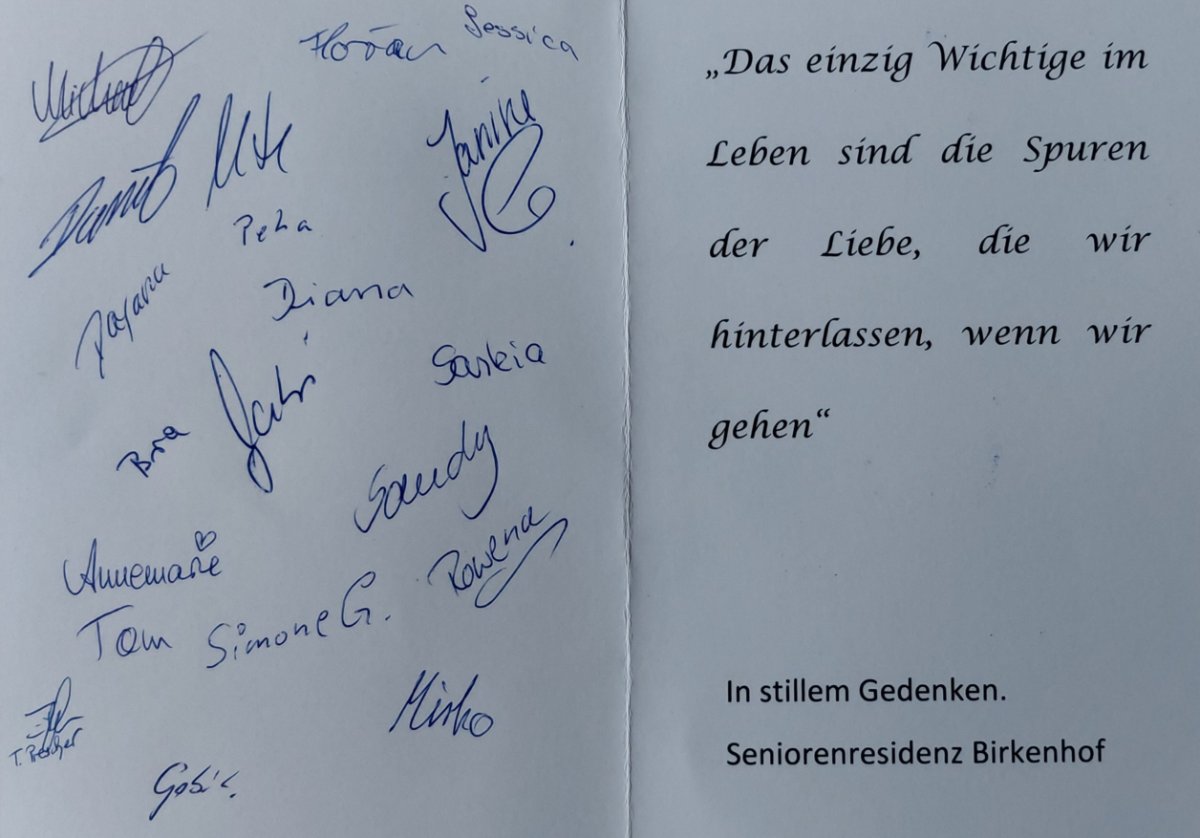 Florian Jessica
Michael
Janine
Ute
Petra
Diana
Dajana
Saskia
Gabi
Sandy
Annemarie
Rowena
Tom Simone G.
Mirko
„Das einzig Wichtige im
Leben sind die Spuren
der Liebe, die wir
hinterlassen, wenn wir
gehen“
In stillem Gedenken.
Seniorenresidenz Birkenhof